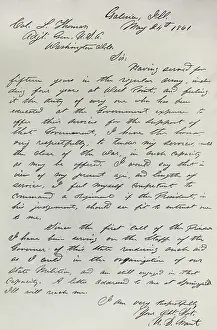 Galena, Ill.
May 24th 1861
Col. L. Thomas,
Adjt. Gen. U.S.A.
Washington D.C.
Sir:
Having served for
fifteen years in the regular army, including
four years at West Point, and feeling
it the duty of every one who has been
educated at the Government expense to
offer their services for the support of
that Government, I have the honor
very respectfully, to tender my services
the close of the War, in such capacity
as may be offered. I would say that in
view of my present age, and length of
service, I feel myself competent to
command a Regiment if the President, in
his judgement, should see fit to entrust one
to me.
Since the first call of the President
I have been serving on the Staff of the
Governor of this State rendering such aid
as I could in the organization of our
State Militia, and am still engaged in that
capacity. A letter addressed to me at Springfield
Ill. will reach me.
I am very Respectfully
Your Obt. Svt.
U. S. Grant